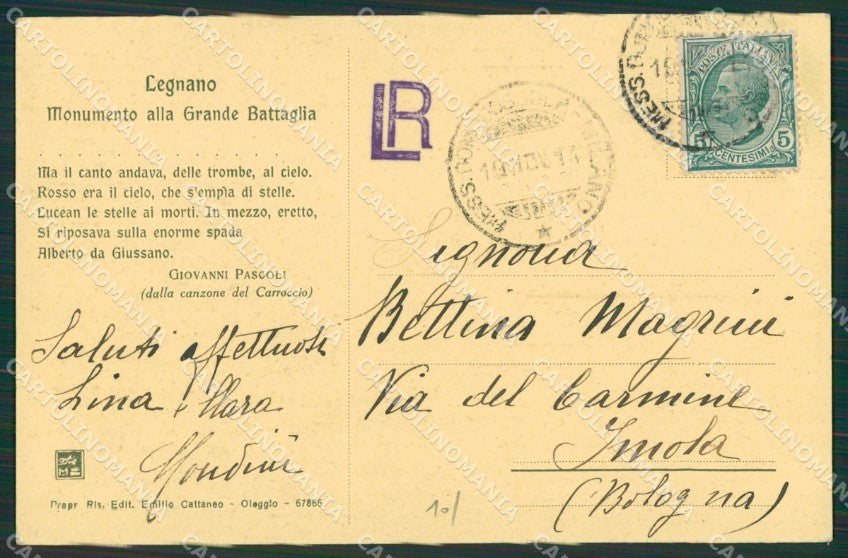 Legnano
Monumento alla Grande Battaglia
Ma il canto andava, delle trombe, al cielo.
Rosso era il cielo, che s'empìa di stelle.
Lucean le stelle ai morti. In mezzo, eretto,
Si riposava sulla enorme spada
Alberto da Giussano.
GIOVANNI PASCOLI
(dalla canzone del Carroccio)
Saluti affettuosi
Lina e Mara
Mondini
Propr. Ris. Edit. Emilio Cattaneo - Oleggio - 67865
LR
MESS. MILANO
19 NOV. 14
POSTE ITALIANE
5 CENTESIMI 5
Signorina
Bettina Magrini
Via del Carmine
Imola
(Bologna)
10/
CARTOLINOMANIA